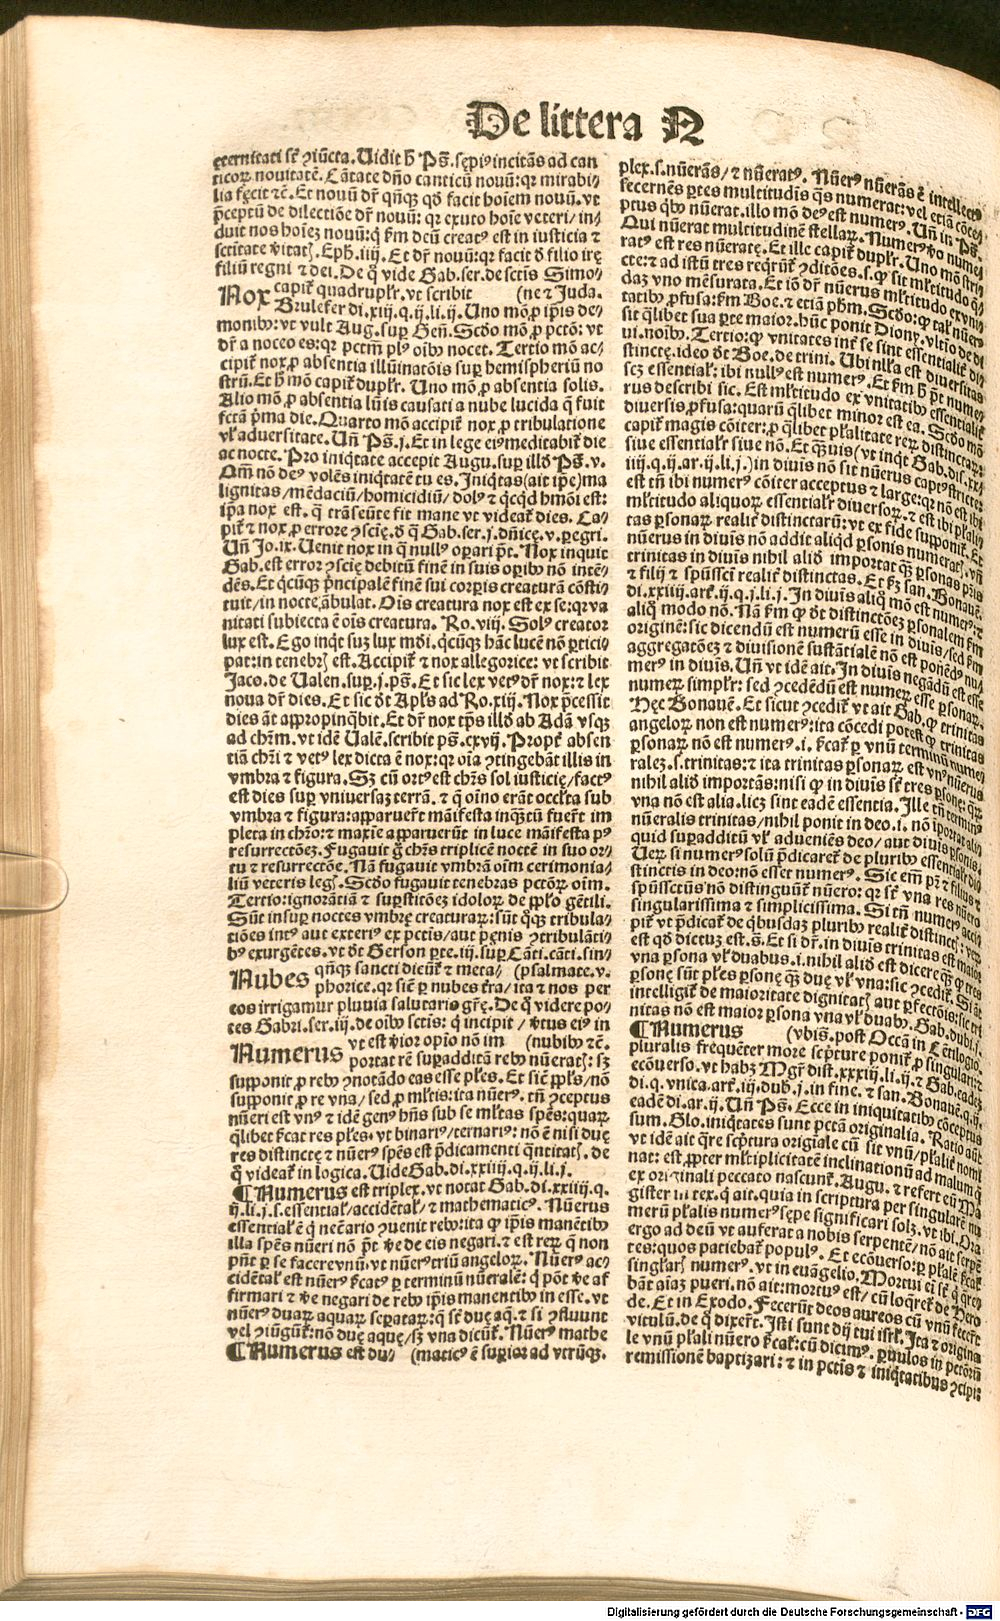 De littera N
ęternitati sẽ ꝯiũcta. Uidit h̃ Ps̃. sępiꝰ incitãs ad can
ticoꝝ nouitatẽ. Cãtate dño canticũ nouũ: qꝛ mirabi/
lia fęcit ⁊c̃. Et nouũ dr̃ qñqꝫ qđ facit hoiem nouũ. vt
p̃ceptũ de dilectiõe dr̃ nouũ: qꝛ exuto hoie veteri/in/
duit nos hoiez nouũ: q̃ ẜm deũ creatꝰ est in iusticia ⁊
sctitate ṽitatꝭ. Eph̃. iiij. Et dr̃ nouũ: qꝛ facit đ filio irę
filiũ regni ⁊ dei. De q̃ vide Gab. ser. de sctĩs Simo/
Nox capit̃ quadruplr̃. vt scribit (ne ⁊ Juda.
Brulefer di. xiij. q. ij. li. ij. Uno mõ ꝓ ip̃is de/
monibꝫ: vt vult Aug. suꝑ Geñ. Scđo mõ ꝓ pctõ: vt
dr̃ a noceo es: qꝛ pctm̃ plꝰ oĩbꝫ nocet. Tertio mõ ac/
cipit̃ nox ꝓ absentia illũinatõis suꝑ hemispheriũ no
strũ. Et h̃ mõ capit̃ duplr̃. Uno mõ ꝓ absentia solis.
Alio mõ ꝓ absentia lũis causati a nube lucida q̃ fuit
fctã p̃ma die. Quarto mõ accipit̃ nox ꝓ tribulatione
vl̃ aduersitate. Uñ Ps̃. j. Et in lege eiꝰ meditabit̃ die
ac nocte. Pro iniq̃tate accepit Augu. suꝑ illđ Ps̃. v.
Qm̃ nõ deꝰ volẽs iniq̃tatẽ tu es. Iniq̃tas (ait ip̃e) ma
lignitas/mẽdaciũ/homicidiũ/dolꝰ ⁊ q̃cqđ hmõi est:
ip̃a nox est. q̃ trãseũte fit mane vt videat̃ dies. Ca/
pit̃ ⁊ nox ꝓ errore ꝯscię. đ q̃ Gab. ser. j. dñicę. v. ꝑegri.
Uñ Jo. ix. Uenit nox in q̃ nullꝰ oꝑari p̃t. Nox inquit
Gab. est error ꝯscię debitũ finẽ in suis oꝑibꝫ nõ intẽ/
dẽs. Et q̃cũqꝫ p̃ncipalẽ finẽ sui corꝑis creaturã cõsti/
tuit/in nocte ãbulat. Ois creatura nox est ex se: qꝛ va
nitati subiecta ẽ ois creatura. Ro. viij. Solꝰ creator
lux est. Ego inq̃t suz lux mđi. q̃cũqꝫ hãc lucẽ nõ ꝑtici/
pat: in tenebrꝭ est. Accipit̃ ⁊ nox allegorice: vt scribit
Jaco. de Ualen. suꝑ. j. ps̃. Et sic lex vetꝰ dr̃ nox: ⁊ lex
noua dr̃ dies. Et sic đt Apl̃s ad Ro. xiij. Nox p̃cessit
dies ãt appropinq̃bit. Et dr̃ nox tp̃s illđ ab Adã vsqꝫ
ad chr̃m. vt idẽ Ualẽ. scribit ps̃. cxvij. Propt̃ absen
tiã chr̃i ⁊ vetꝰ lex dicta ẽ nox: qꝛ oia ꝯtingebãt illis in
vmbra ⁊ figura. Sꝫ cũ ortꝰ est chr̃s sol iusticię/factꝰ
est dies suꝑ vniuersaz terrã. ⁊ q̃ oĩno erãt occl̃ta sub
vmbra ⁊ figura: apparuer̃t mãifesta inq̃ztũ fuer̃t im
pleta in chr̃o: ⁊ maxie apparuerũt in luce mãifesta pꝰ
resurrectõez. Fugauit g̃ chr̃s triplicẽ noctẽ in suo or/
tu ⁊ resurrectõe. Nã fugauit vmbrã oim̃ cerimonia/
liũ veteris legꝭ. Scđo fugauit tenebras pctõꝝ oim̃.
Tertio: ignorãtiã ⁊ suꝑstitõez idoloꝝ de pp̃lo gẽtili.
Sũt insuꝑ noctes vmbrę creaturaꝝ: sũt q̃qꝫ tribula/
tiões intꝰ aut exteriꝰ ex pctĩs/aut pęnis ꝯtribulãti/
bꝰ exurgẽtes. vt đt Gerson ꝑte. iij. suꝑ Cãti. cãti. sin/
Nubes qñqꝫ sancti dicũt̃ ⁊ meta/ (psalmate. v.
phorice. qꝛ siẽ ꝑ nubes t̃ra/ita ⁊ nos per
eos irrigamur pluuia salutaris gr̃ę. De q̃ videre po/
tes Gabri. ser. iij. de oĩbꝫ sctĩs: q̃ incipit/ṽtus eiꝰ in
Numerus vt est ṽior opio nõ im (nubibꝫ ⁊c̃.
portat rẽ suꝑadditã rebꝫ nũeratꝭ: sꝫ
supponit ꝓ rebꝫ ꝯnotãdo eas esse pl̃es. Et sicẽ ppl̃s/nõ
supponit ꝓ re vna/sed ꝓ ml̃tis: ita nũerꝰ. tñ ꝯceptus
nũeri est vnꝰ ⁊ idẽ genꝰ hñs sub se ml̃tas spẽs: quaꝝ
q̃libet ẜcat res pl̃es. vt binariꝰ/ternariꝰ: nõ ẽ nisi duę
res distinctę ⁊ nũerꝰ spẽs est p̃dicamenti q̃ntitatꝭ. de
q̃ videat̃ in logica. Uide Gab. di. xxiiij. q. ij. li. j.
¶ Numerus est triplex. vt notat Gab. di. xxiiij. q.
ij. li. j. s. essential̃/accidẽtal̃/⁊ mathematicꝰ. Nũerus
essential̃ ẽ q̃ necẽario ꝯuenit rebꝫ: ita ꝙ ip̃is manẽtibꝫ
illa spẽs nũeri nõ p̃t ṽe de eis negari. ⁊ est reꝝ q̃ non
pñt ꝑ se facere vnũ. vt nũerꝰ triũ angeloꝝ. Nũerꝰ ac/
cidẽtal̃ est nũerꝰ ẜcatꝰ ꝑ terminũ nũeralẽ: q̃ põt ṽe af
firmari ⁊ ṽe negari de rebꝫ ip̃is manentibꝫ in esse. vt
nũerꝰ duaꝝ aquaꝝ seꝑataꝝ: q̃ sẽt duę aq̃. ⁊ si ꝯfluunt
vel ꝯiũgũt̃: nõ duę aquę/sꝫ vna dicũt̃. Nũerꝰ mathe
¶ Numerus est du/ (maticꝰ ẽ suꝑior ad vtrũqꝫ.
plex. s. nũerãs/⁊ nũeratꝰ. Nũerꝰ nũerãs ẽ intellectꝰ
secernẽs ꝑtes multitudĩs q̃s numerat: vel etiã cõce/
ptus q̃bꝫ nũerat. illo mõ deꝰ est numerꝰ. Uñ in Ps̃.
Qui nũerat multitudinẽ stellaꝝ. Numerꝰ ṽo nume/
ratꝰ est res nũeratę. Et ille capit̃ duplr̃. Uno mõ stri
cte: ⁊ ad istũ tres reqr̃ũt̃ ꝯditões. s. ꝙ sit ml̃titudo q̃/
daz vno mẽsurata. Et iõ dr̃ nũerus ml̃titudo ex vni/
tatibꝫ ꝓfusa: ẜm Boe. ⁊ etiã ph̃m. Scđo: ꝙ tal̃ nũerꝰ
sit q̃libet sua ꝑte maior. hũc ponit Dionꝭ. vltĩo de di
ui. noĩbꝫ. Tertio: ꝙ vnitates int̃ se sint essentialit̃ di/
stinctę. ideo đt Boe. de trini. Ubi nl̃la est diuersitas
scꝫ essential̃: ibi nullꝰ est numerꝰ. Et ẜm h̃ p̃t nume/
rus describi sic. Est ml̃titudo ex vnitatibꝫ essentialit̃
diuersis ꝓfusa: quarũ q̃libet minor est ea. Scđo mõ
capit̃ magis cõiter: ꝓ q̃libet pl̃alitate reꝝ distinctaꝝ:
siue essentialr̃ siue nõ. Et q̃zuis (vt inq̃t Gab. dis. xxi
iiij. q. ij. ar. ij. li. j.) in diuis nõ sit nũerus captꝰ stricte:
est tñ ibi numerꝰ cõiter acceptus ⁊ large: qꝛ nõ est ibi
ml̃titudo aliquoꝝ essentialr̃ diuersoꝝ. ⁊ est ibi pl̃ali/
tas ꝑsonaꝝ realit̃ distinctarũ: vt ex fide supponit̃. Et
nũerus in diuis nõ addit aliqđ ꝑsonis numeratꝭ. vñ
trinitas in diuis nihil aliđ importat q̃ꝫ ꝑsonas pr̃is
⁊ filij ⁊ spũsscti realit̃ distinctas. Et ẜꝫ san. Bonauẽ.
di. xxiiij. art̃. ij. q. j. li. j. In diuis aliq̃ mõ est numerꝰ: ⁊
aliq̃ modo nõ. Nã ẜm ꝙ đt distinctõez ꝑsonalem ẜm
originẽ: sic dicendũ est numerũ esse in diuis/sed ẜm
aggregatõez ⁊ diuisionẽ sustãtialẽ nõ est ponẽdꝰ nu/
merꝰ in diuis. Uñ vt idẽ ait. In diuis negãdũ est esse
numeꝝ simplr̃: sed ꝯcedẽdũ est numeꝝ esse ꝑsonaꝝ.
Hęc Bonauẽ. Et sicut ꝯcedit̃ vt ait Gab. ꝙ trinitas
angeloꝝ non est numerꝰ: ita cõcedi potest ꝙ trinitas
ꝑsonaꝝ nõ est numerꝰ. i. ẜcat̃ ꝑ vnũ terminũ nume/
ralez. s. trinitas: ⁊ ita trinitas ꝑsonaꝝ est vnꝰ nũerus
nihil aliđ importãs: nisi ꝙ in diuis sẽt tres ꝑsonę: q̃ꝝ
vna nõ est alia. licꝫ sint eadẽ essentia. Ille tñ terminꝰ
nũeralis trinitas/nihil ponit in deo. i. nõ ĩportat ali/
quid suꝑadditũ vl̃ adueniẽs deo/aut diuis ꝑsonis.
Ueꝝ si numerꝰ solũ p̃dicaret̃ de pluribꝫ essentialr̃ di/
stinctis in deo: nõ esset numerꝰ. Sic em̃ pr̃ ⁊ filius ⁊
spũssctus nõ distinguũt̃ nũero: qꝛ sẽt vna res nũero
singularissima ⁊ simplicissima. Si tñ numerꝰ acci/
pit̃ vt p̃dicat̃ de q̃busdaz pluribꝫ realit̃ distinctꝭ: verꝫ
est qđ dictuz est. s̃. Et si dr̃. in diuis trinitas est maior
vna ꝑsona vl̃ duabus. i. nihil aliđ est dicere q̃ꝫ ꝙ tres
ꝑsonę sũt pl̃es ꝑsonę q̃ꝫ duę vl̃ vna: sic ꝯcedit̃. Si ãt
intelligit̃ de maioritate dignitatꝭ aut ꝑfectõis: sic tri
nitas nõ est maior ꝑsona vna vl̃ duabꝫ. Gab. dubi. j.
¶ Numerus (vbi s̃. post Occã in Cẽtilogio.
pluralis frequẽter more scp̃ture ponit̃ ꝓ singulari: ⁊
ecõuerso. vt habꝫ Mgr̃ dist. xxxiij. li. ij. ⁊ Gab. eadez
di. q. vnica. art̃. iij. dub. j. in fine. ⁊ san. Bonauẽ. q. ij.
eadẽ di. ar. ij. Uñ Ps̃. Ecce in iniquitatibꝫ cõceptus
sum. Glo. iniq̃tates sunt pctã originalia. Ratio aũt
vt idẽ ait q̃re scp̃tura origĩale cũ sit vnũ/pl̃alit̃ nomi
nat: est ꝓpter ml̃tiplicitatẽ inclinationũ ad malum q̃
ex originali peccato nascunt̃. Augu. ⁊ refert eũ Ma
gister in tex. q̃ ait. quia in scriptura per singularẽ nu
merũ pl̃alis numerꝰ sępe significari solꝫ. vt ibi. Ora
ergo ad deũ vt auferat a nobis serpentẽ/nõ ait serpẽ
tes: quos patiebat̃ populꝰ. Et ecõuerso: ꝑ pl̃alẽ ẜcat̃
singlarꝭ numerꝰ. vt in euãgelio. Mortui eĩ sẽt q̃ q̃re/
bãt aĩaz pueri. nõ ait: mortuꝰ est/cũ loq̃ret̃ de Hero
de. Et in Exodo. Fecerũt deos aureos cũ vnũ fecer̃t
vitulũ. de q̃ dixer̃t. Isti sunt dij tui isrl̃. Ita ⁊ origina
le vnũ pl̃ali nũero ẜcat̃: cũ dicimꝰ. ꝑuulos in pctõrũ
remissionẽ baptizari: ⁊ in pctĩs ⁊ iniq̃tatibus ꝯcipi:
Digitalisierung gefördert durch die Deutsche Forschungsgemeinschaft - DFG